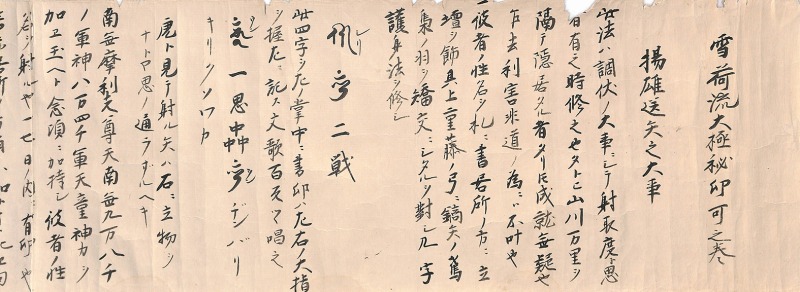 雪荷流大極秘印可之巻
揚雄送矢之大事
此法ハ調伏ノ大事ニシテ射取度ト思
者有之時修之也タトヒ山川万里ヲ
隔テ隠居タル者タリトモ成就無疑也
乍去利害非道ノ為ニハ不叶也
彼者ノ性名ヲ札ニ書居所ノ方ニ立
壇ヲ飾其上重藤ノ弓ニ鏑矢ノ
梟ノ羽ヲ矯交ニシタルヲ對シ九字
護身ノ法ヲ修シ
二戦
此四字ヲ左ノ掌中ニ書印ハ左右ノ大指
ヲ握左ニ記ス文歌百反ツヽ唱之
一思
キリクソワカ
虎ト見テ射ル矢ハ石ニ立物ヲ
ナトヤ思ノ通ラサルヘキ
南無摩利支尊天南無九万八千
ノ軍神八万四千軍天童神力ヲ
加ヱ玉ヘト念頃ニ加持シ彼者ノ性
名ヲ射ルヤ一七日ノ内ニ有印也